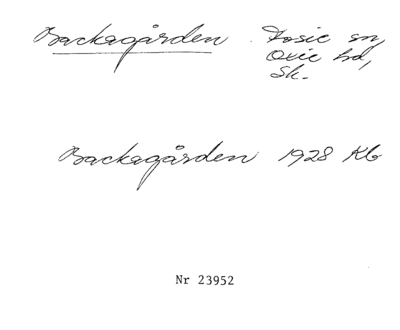 Backagården. Fosie sn,
Oxie hd,
Sk.
Backagården 1928 Kb
Nr 23952